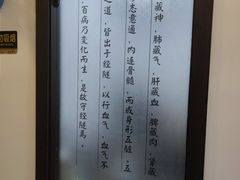 藏神，肺藏气，肝藏血，脾藏肉，肾藏
志意通，内连骨髓，而成身形五脏。五
之道，皆出于经隧，以行血气，血气不
，百病乃变化而生，是故守经隧焉。
勿吸烟